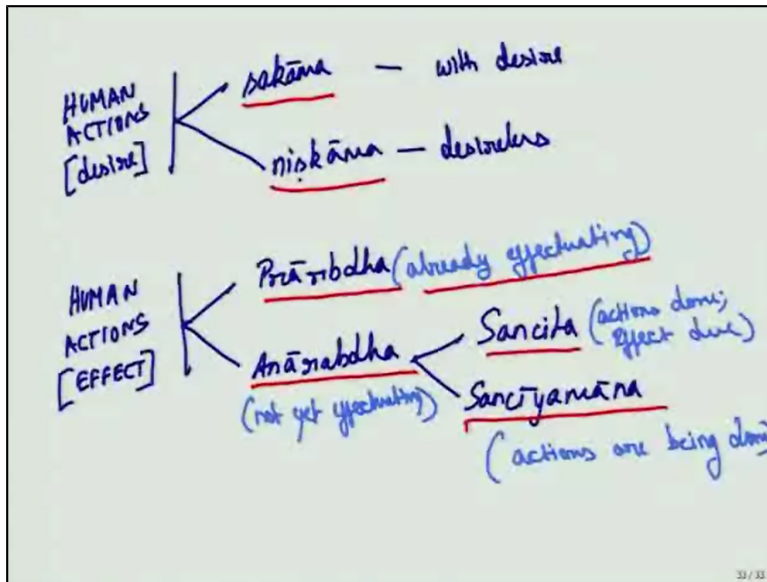 HUMAN ACTIONS [desire]
sakāma — with desire
niṣkāma — desireless
HUMAN ACTIONS [EFFECT]
Prārabdha (already effectuating)
Anārabdha (not yet effectuating)
Sancita (actions done; effect due)
Sancīyamāna (actions are being done)
33 / 33